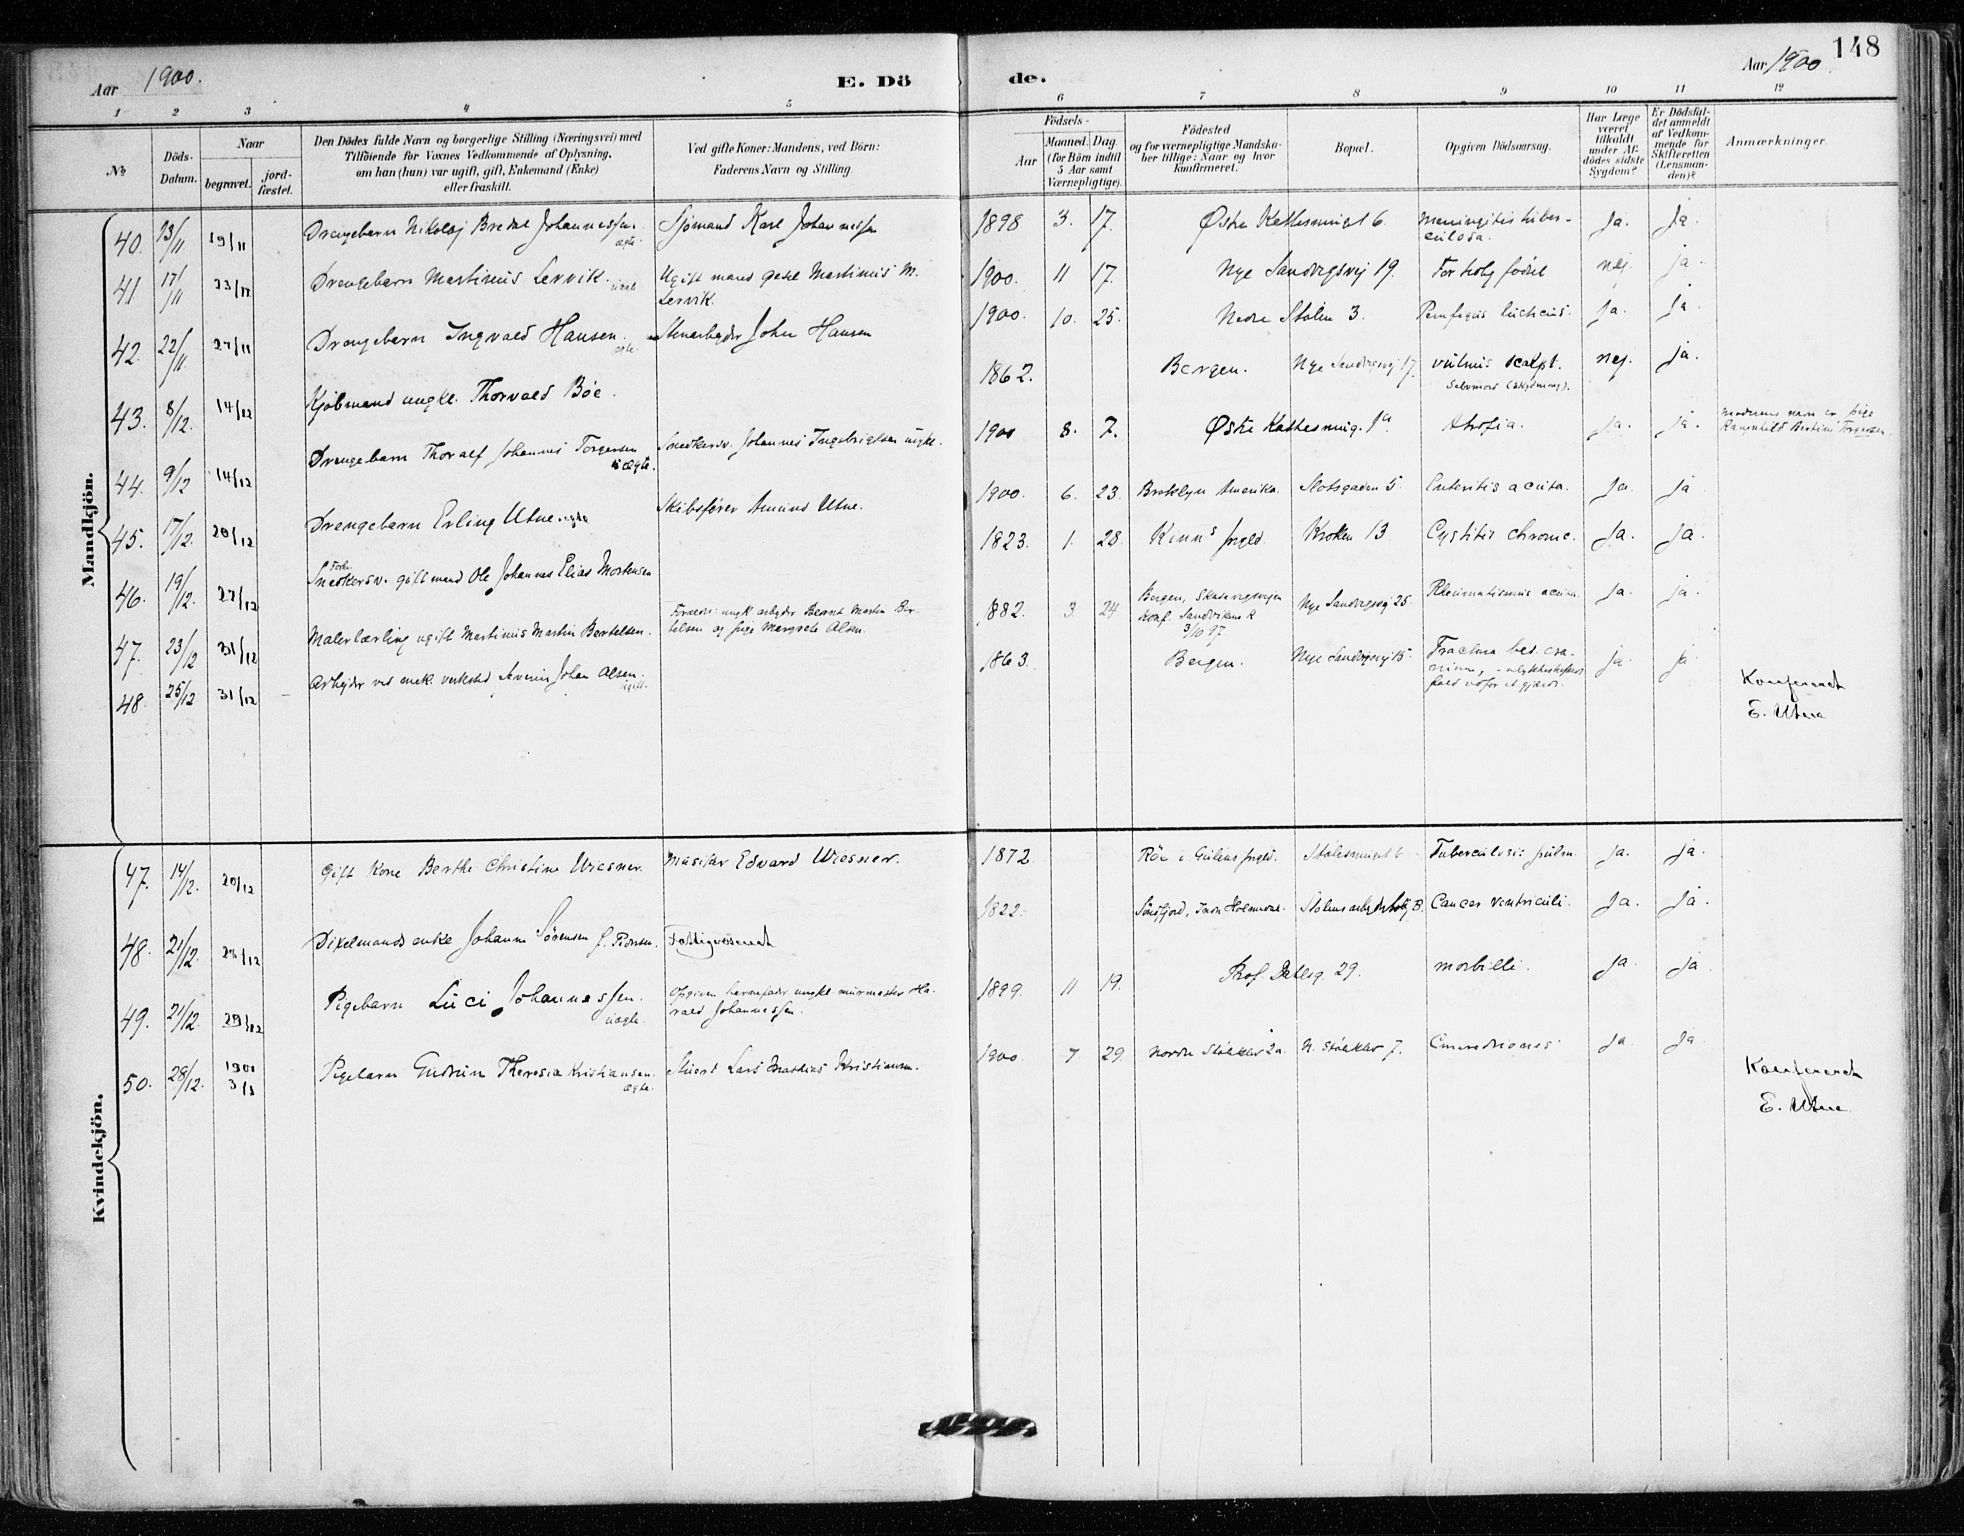 148
Aar 1900.
E. Dö
de.
Aar 1900.
1 2 3 4 5 6 7 8 9 10 11 12
No
Döds-
Datum.
Naar
begravet.
jord-
fæstet.
Den Dödes fulde Navn og borgerlige Stilling (Næringsvei) med
Tilföiende for Voxnes Vedkommende af Oplysning,
om han (hun) var ugift, gift, Enkemand (Enke)
eller fraskilt.
Ved gifte Koner: Mandens, ved Börn:
Faderens Navn og Stilling.
Födsels-
Aar
Maaned. Dag.
(for Börn indtil
5 Aar samt
Værnepligtige).
Födested
og for værnepligtige Mandska-
ber tillige: Naar og hvor
konfirmeret.
Bopæl.
Opgiven Dödsaarsag.
Har Læge
været
tilkaldt
under Af-
dödes sidste
Sygdom?
Er Dödsfal-
det anmeldt
af Vedkom-
mende for
Skifteretten
(Lensman-
den)?
Anmærkninger.
Mandkjön.
40. 13/11 19/11 Drengebarn Nikolaj Bredal Johannessen. ægte. Sjömand Karl Johannessen 1898 3. 17. Østre Kattesmug 6. Meningitis tuber-
culosa. Ja. Ja.
41 17/11 23/11 Drengebarn Martinus Lervik. uægte Ugift mand Martinus M.
Lervik. 1900. 11 17. Nye Sandvigsvej 19. Fortidlig födt nej. ja.
42. 22/11 27/11 Drengebarn Ingvald Hansen. ægte. Stenarbejder John Hansen 1900. 10. 25. Nedre Stölen 3. Pemfigus lueticus. Ja. Ja.
43. 8/12. 14/12 Kjöbmand ungk. Thorvald Böe. 1862. Bergen. Nye Sandvigsvej 17. vulnus sclopt.
Selvmord (skydning). nej. ja.
44. 9/12 14/12 Drengebarn Thoralf Johannes Torgersen uægte. Snedkersv. Johannes Ingebrigtsen ungk. 1900 8. 7. Østre Kattesmug. 1a. Atrofia. Ja. ja. Moderens navn er pige
Ragnhild Bertine Torgersen.
45. 17/12. 20/12 Drengebarn Erling Utne. ægte Skibsförer Amund Utne. 1900. 6. 23. Broklyn Amerika. Slotsgaden 5. Enteritis acuta. Ja. ja
46. 19/12. 27/12 Forhv.
Snedkersv. gift mand Ole Johannes Elias Mortensen 1823. 1. 28. Kinns prgld. Kroken 13. Cystitis chronic. Ja. Ja.
47. 23/12 31/12 Malerlærling ugift Martinus Martin Bertelsen. Forældre: ungk. arbejder Bernt Martin Ber-
telsen og pige Margrete Olsen. 1882. 3 24 Bergen, Skuteviksvejen
konf. Sandvikens K
3/10 97. Nye Sandvigsvej 25. Rheumatismus acuta. Ja. ja.
48. 25/12 31/12 Arbejder ved mek. verksted Severin Johan Olsen. ugift. 1863. Bergen. Nye Sandvigsvej 15. Fractura bas. cra-
nium, - ulykkestilfælde
fald udfor et gjerde. ja. ja
Konfereret
E. Utne
Kvindekjön.
47. 14/12. 20/12 Gift Kone Berthe Christine Wiesner. Musiker Edvard Wiesner. 1872. Röe i Gulens prgld. Stölesmuget 6 Tuberculosis pulm. Ja. ja.
48. 21/12. 28/12 Dixelmands enke Johanne Sörensen f. Fattigvæsenet 1822. Söndfjord, Stölens arbejderbolig B. Cancer ventriculi. Ja. Ja.
49. 21/12. 29/12 Pigebarn Luci Johannessen. uægte. Opgiven barnefader ungk. murmester Ha-
rald Johannessen. 1899. 11 19. Prof. Dahlsg. 29. morbilli. Ja. ja
50. 28/12. 1901
3/1 Pigebarn Gudrun Theresia Kristiansen. ægte. Stuert Lars Mathias Kristiansen. 1900. 7 29. Nordre Stölekler 2a. N. Stölekler 7. Ja. Ja.
Konfereret
E. Utne